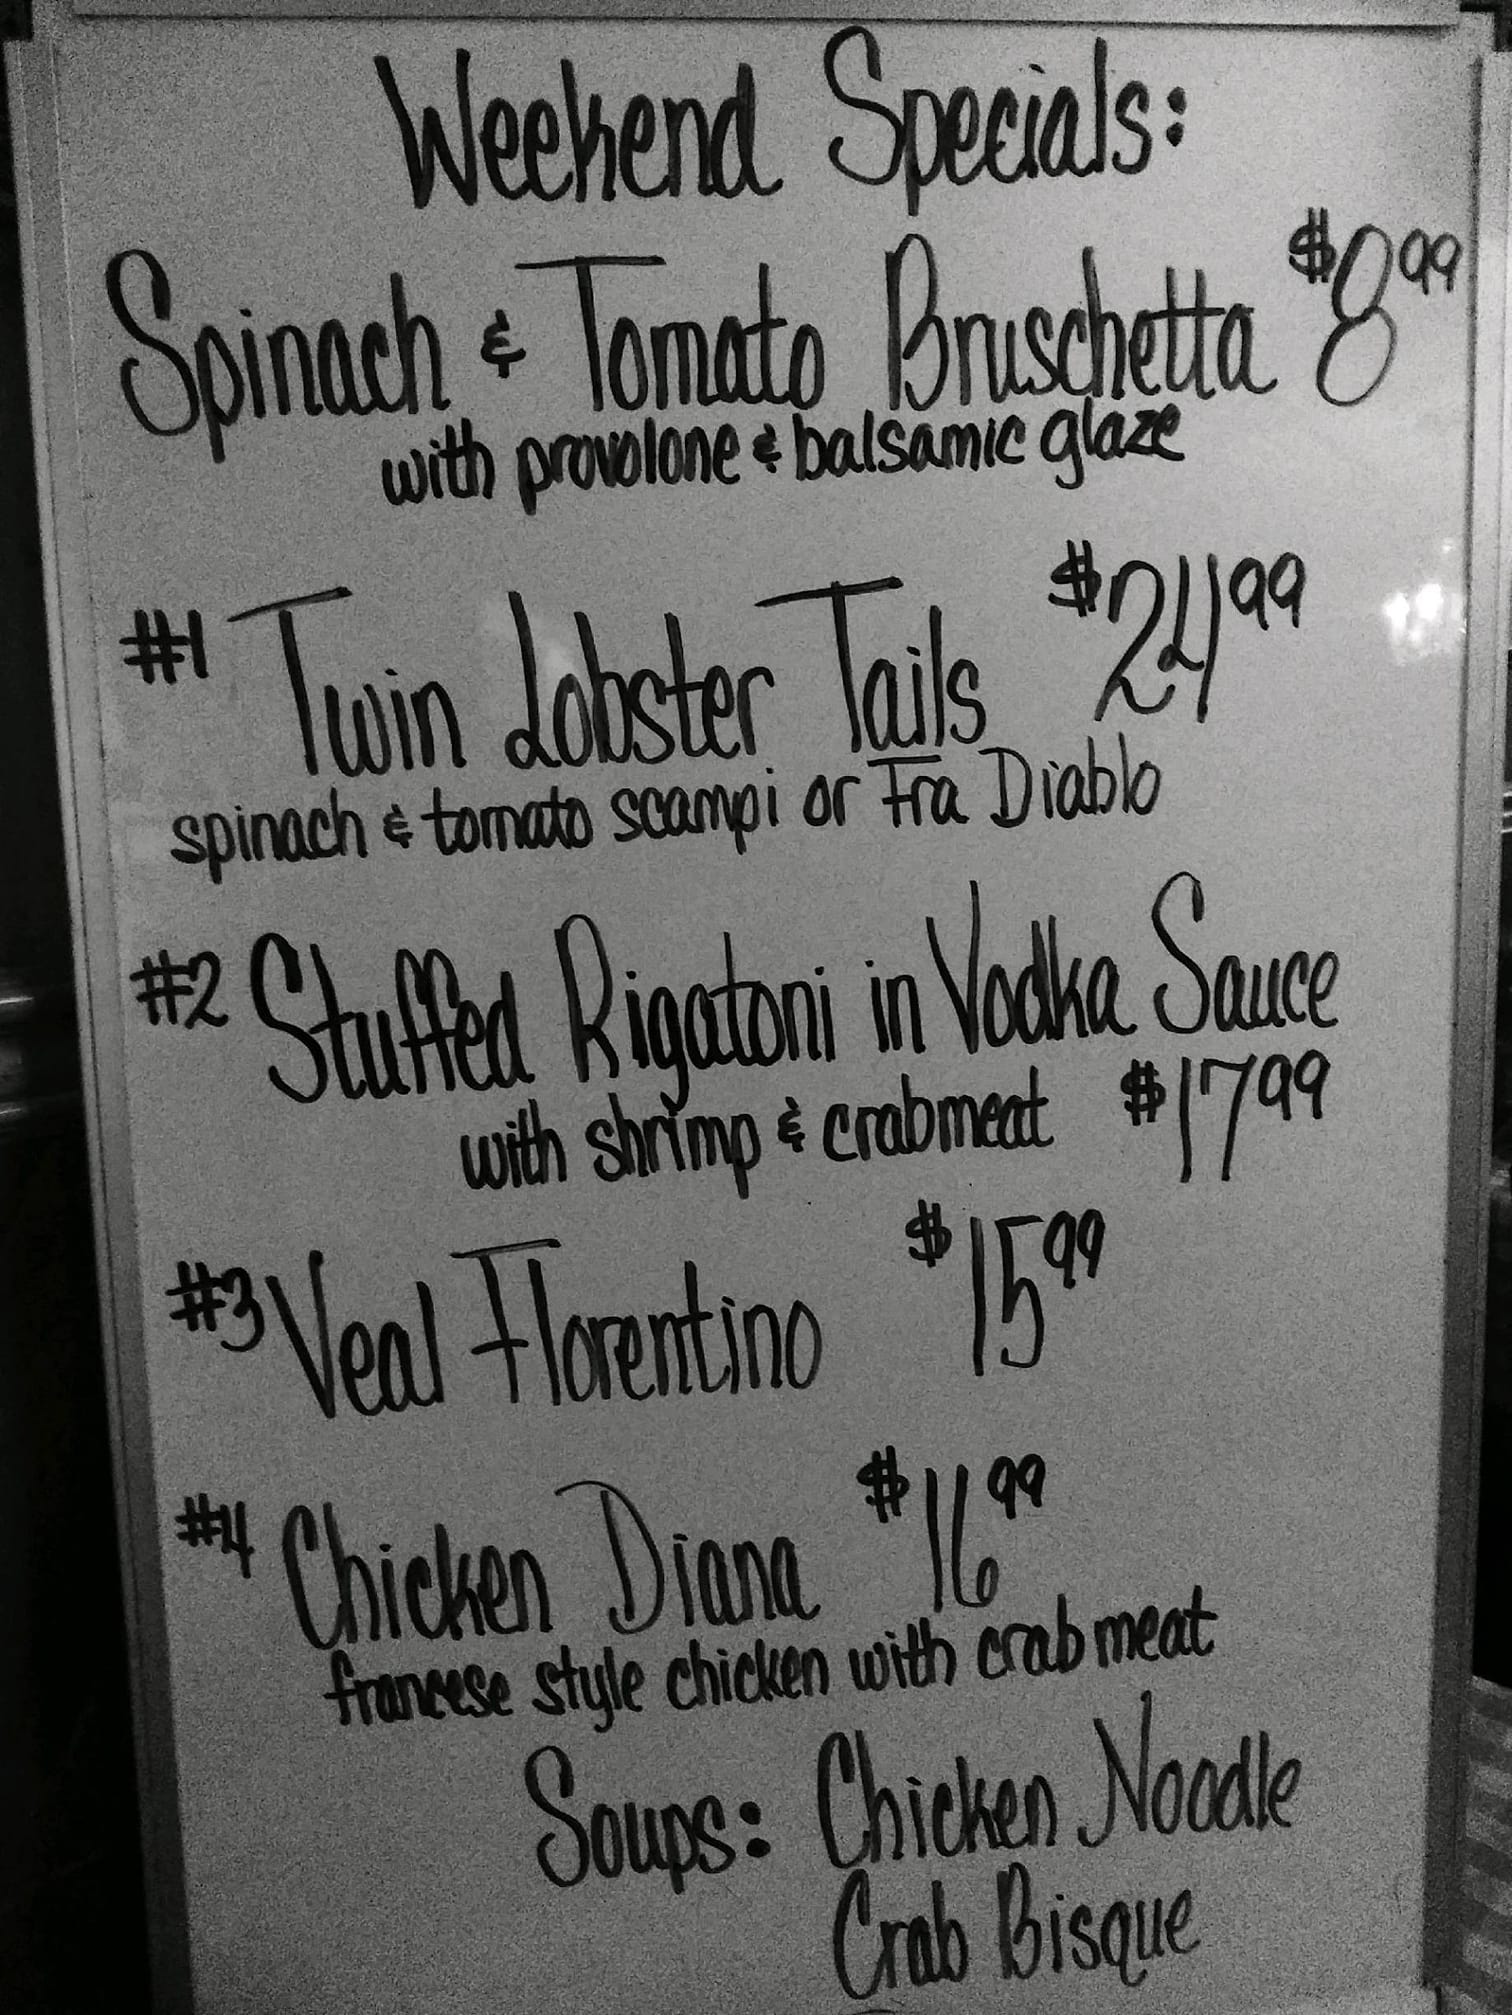 Weekend Specials:
Spinach & Tomato Bruschetta $8.99
with provolone & balsamic glaze
#1 Twin Lobster Tails $24.99
spinach & tomato scampi or Fra Diablo
#2 Stuffed Rigatoni in Vodka Sauce
with shrimp & crabmeat $17.99
#3 Veal Florentino $15.99
#4 Chicken Diana $16.99
francese style chicken with crabmeat
Soups: Chicken Noodle
Crab Bisque